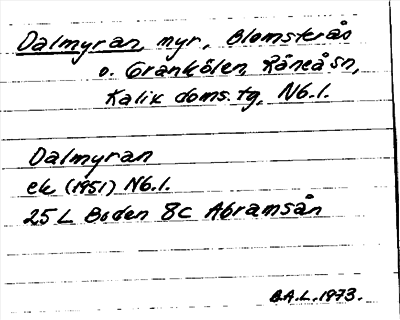 Dalmyran, myr, Blomsterås
o. Grankölen, Råneå sn,
Kalix doms. tg, Nb. l.
Dalmyran
ek (1951) Nb. l.
25 L Boden 8c Abramsån
B.A.L. 1973.